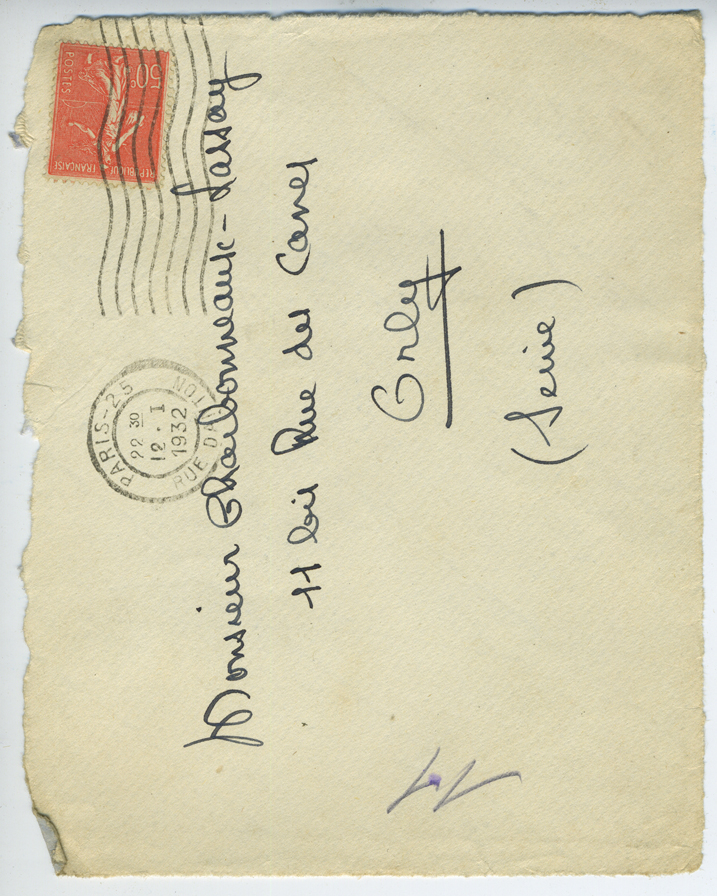 50c
POSTES
REPUBLIQUE FRANÇAISE
PARIS-25
22 30
12 · I
1932
RUE DANTON
Monsieur Charbonneaux-Lassay
11 bis Rue des Canes
Orly
(Seine)